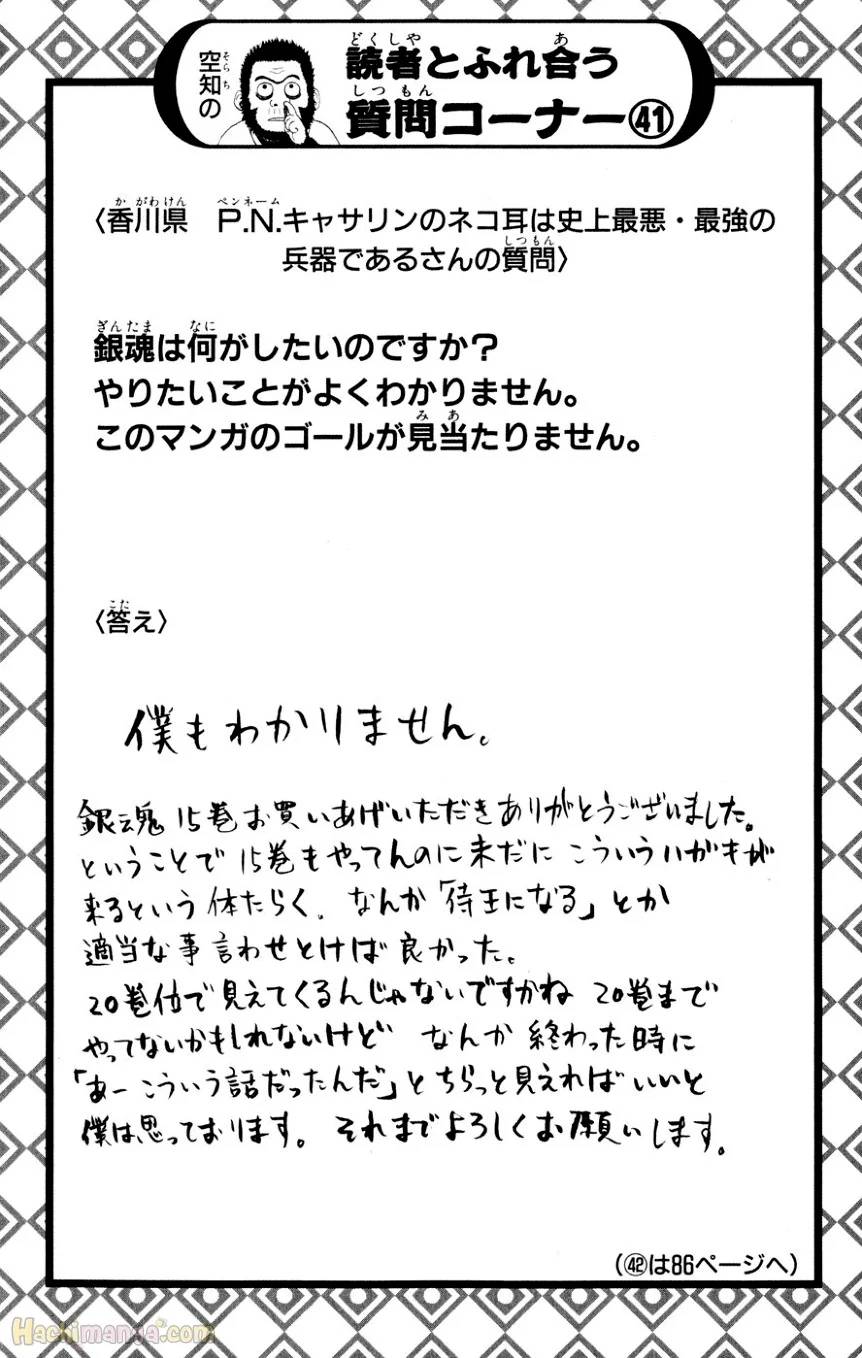 空知の
読者とふれ合う
質問コーナー㊶
〈香川県　P.N.キャサリンのネコ耳は史上最悪・最強の
兵器であるさんの質問〉
銀魂は何がしたいのですか？
やりたいことがよくわかりません。
このマンガのゴールが見当たりません。
〈答え〉
僕もわかりません。
銀魂15巻お買いあげいただきありがとうございました。
ということで15巻もやってんのに未だにこういうハガキが
来るという体たらく。なんか「侍王になる」とか
適当な事言わせとけば良かった。
20巻位で見えてくるんじゃないですかね 20巻まで
やってないかもしれないけど なんか終わった時に
「あーこういう話だったんだ」とちらっと見えればいいと
僕は思っております。それまでよろしくお願いします。
（㊷は86ページへ）
Hachimanya.com